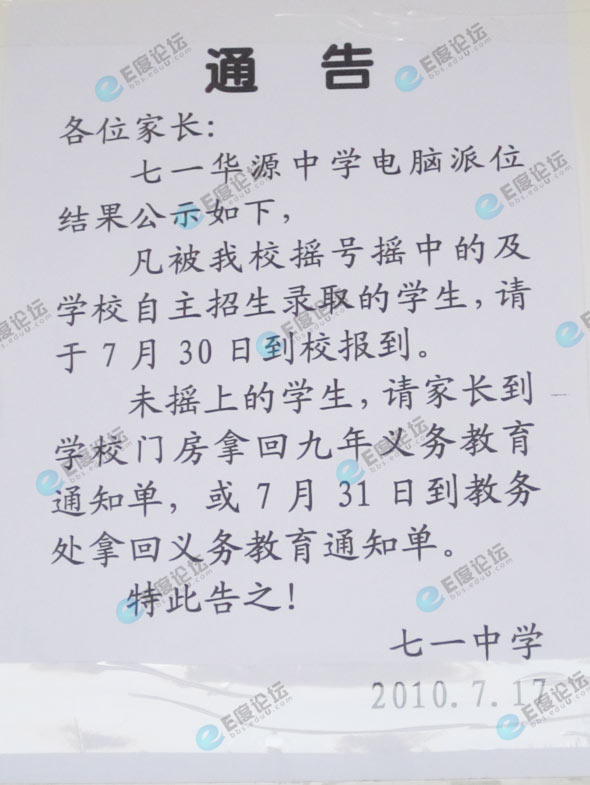 通 告
各位家长:
七一华源中学电脑派位
结果公示如下,
凡被我校摇号摇中的及
学校自主招生录取的学生,请
于7月30日到校报到。
未摇上的学生,请家长到
学校门房拿回九年义务教育
通知单,或7月31日到教务
处拿回义务教育通知单。
特此告之!
七一中学
2010.7.17
E度论坛
bbs.eduu.com